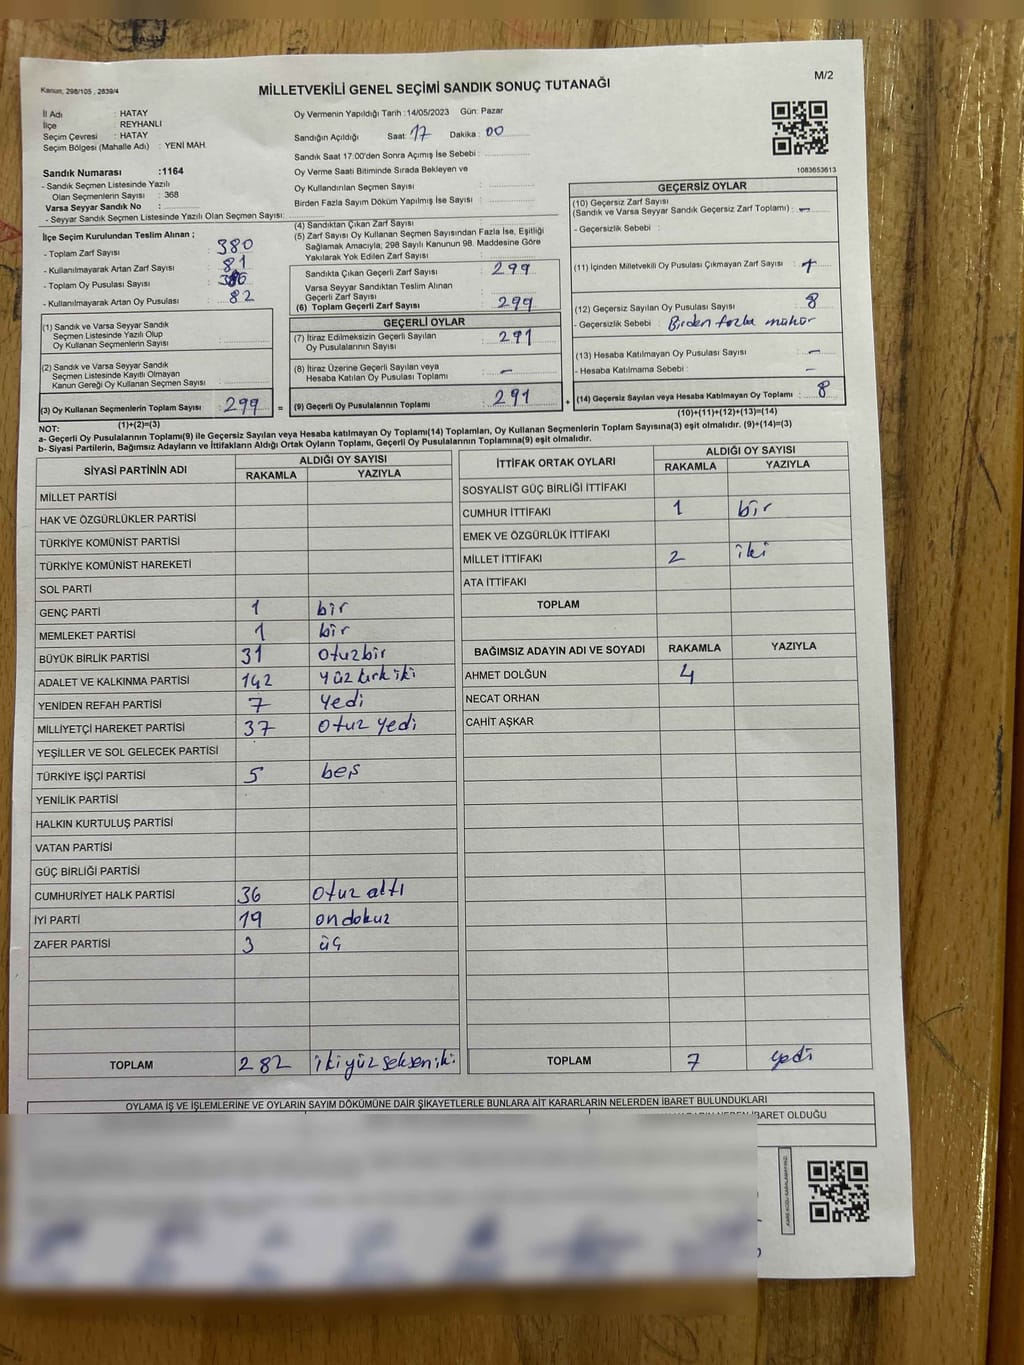 Kanun, 298/105 , 2839/4
MİLLETVEKİLİ GENEL SEÇİMİ SANDIK SONUÇ TUTANAĞI
M/2
İl Adı : HATAY
İlçe : REYHANLI
Seçim Çevresi : HATAY
Seçim Bölgesi (Mahalle Adı) : YENİ MAH.
Sandık Numarası :1164
- Sandık Seçmen Listesinde Yazılı
Olan Seçmenlerin Sayısı : 368
Varsa Seyyar Sandık No :
- Seyyar Sandık Seçmen Listesinde Yazılı Olan Seçmen Sayısı:
Oy Vermenin Yapıldığı Tarih :14/05/2023 Gün: Pazar
Sandığın Açıldığı Saat: 17 Dakika : 00
Sandık Saat 17:00'den Sonra Açımış İse Sebebi :
Oy Verme Saati Bitiminde Sırada Bekleyen ve
Oy Kullandırılan Seçmen Sayısı :
Birden Fazla Sayım Döküm Yapılmış İse Sayısı :
1083653613
İlçe Seçim Kurulundan Teslim Alınan ;
- Toplam Zarf Sayısı : 380
- Kullanılmayarak Artan Zarf Sayısı : 81
- Toplam Oy Pusulası Sayısı :
- Kullanılmayarak Artan Oy Pusulası : 82
(1) Sandık ve Varsa Seyyar Sandık
Seçmen Listesinde Yazılı Olup
Oy Kullanan Seçmenlerin Sayısı :
(2) Sandık ve Varsa Seyyar Sandık
Seçmen Listesinde Kayıtlı Olmayan
Kanun Gereği Oy Kullanan Seçmen Sayısı :
(3) Oy Kullanan Seçmenlerin Toplam Sayısı : 299 =
(1)+(2)=(3)
(4) Sandıktan Çıkan Zarf Sayısı
(5) Zarf Sayısı Oy Kullanan Seçmen Sayısından Fazla İse, Eşitliği
Sağlamak Amacıyla; 298 Sayılı Kanunun 98. Maddesine Göre
Yakılarak Yok Edilen Zarf Sayısı :
Sandıkta Çıkan Geçerli Zarf Sayısı : 299
Varsa Seyyar Sandıktan Teslim Alınan
Geçerli Zarf Sayısı :
(6) Toplam Geçerli Zarf Sayısı : 299
GEÇERLİ OYLAR
(7) İtiraz Edilmeksizin Geçerli Sayılan
Oy Pusulalarının Sayısı : 291
(8) İtiraz Üzerine Geçerli Sayılan veya
Hesaba Katılan Oy Pusulası Toplamı : -
(9) Geçerli Oy Pusulalarının Toplamı : 291 +
GEÇERSİZ OYLAR
(10) Geçersiz Zarf Sayısı
(Sandık ve Varsa Seyyar Sandık Geçersiz Zarf Toplamı) : -
- Geçersizlik Sebebi :
(11) İçinden Milletvekili Oy Pusulası Çıkmayan Zarf Sayısı :
(12) Geçersiz Sayılan Oy Pusulası Sayısı : 8
- Geçersizlik Sebebi : Birden fazla mühür
(13) Hesaba Katılmayan Oy Pusulası Sayısı : -
- Hesaba Katılmama Sebebi : -
(14) Geçersiz Sayılan veya Hesaba Katılmayan Oy Toplamı : 8
(10)+(11)+(12)+(13)=(14)
NOT:
a- Geçerli Oy Pusulalarının Toplamı(9) ile Geçersiz Sayılan veya Hesaba katılmayan Oy Toplamı(14) Toplamları, Oy Kullanan Seçmenlerin Toplam Sayısına(3) eşit olmalıdır. (9)+(14)=(3)
b- Siyasi Partilerin, Bağımsız Adayların ve İttifakların Aldığı Ortak Oyların Toplamı, Geçerli Oy Pusulalarının Toplamına(9) eşit olmalıdır.
SİYASİ PARTİNİN ADI
ALDIĞI OY SAYISI
RAKAMLA YAZIYLA
MİLLET PARTİSİ
HAK VE ÖZGÜRLÜKLER PARTİSİ
TÜRKİYE KOMÜNİST PARTİSİ
TÜRKİYE KOMÜNİST HAREKETİ
SOL PARTİ
GENÇ PARTİ 1 bir
MEMLEKET PARTİSİ 1 bir
BÜYÜK BİRLİK PARTİSİ 31 otuzbir
ADALET VE KALKINMA PARTİSİ 142 yüz kırk iki
YENİDEN REFAH PARTİSİ 7 yedi
MİLLİYETÇİ HAREKET PARTİSİ 37 otuz yedi
YEŞİLLER VE SOL GELECEK PARTİSİ
TÜRKİYE İŞÇİ PARTİSİ 5 beş
YENİLİK PARTİSİ
HALKIN KURTULUŞ PARTİSİ
VATAN PARTİSİ
GÜÇ BİRLİĞİ PARTİSİ
CUMHURİYET HALK PARTİSİ 36 otuz altı
İYİ PARTİ 19 on dokuz
ZAFER PARTİSİ 3 üç
TOPLAM 282 ikiyüz seksen iki
İTTİFAK ORTAK OYLARI
ALDIĞI OY SAYISI
RAKAMLA YAZIYLA
SOSYALİST GÜÇ BİRLİĞİ İTTİFAKI
CUMHUR İTTİFAKI 1 bir
EMEK VE ÖZGÜRLÜK İTTİFAKI
MİLLET İTTİFAKI 2 iki
ATA İTTİFAKI
TOPLAM
BAĞIMSIZ ADAYIN ADI VE SOYADI RAKAMLA YAZIYLA
AHMET DOLĞUN 4
NECAT ORHAN
CAHİT AŞKAR
TOPLAM 7 yedi
OYLAMA İŞ VE İŞLEMLERİNE VE OYLARIN SAYIM DÖKÜMÜNE DAİR ŞİKAYETLERLE BUNLARA AİT KARARLARIN NELERDEN İBARET BULUNDUKLARI
İBARET OLDUĞU